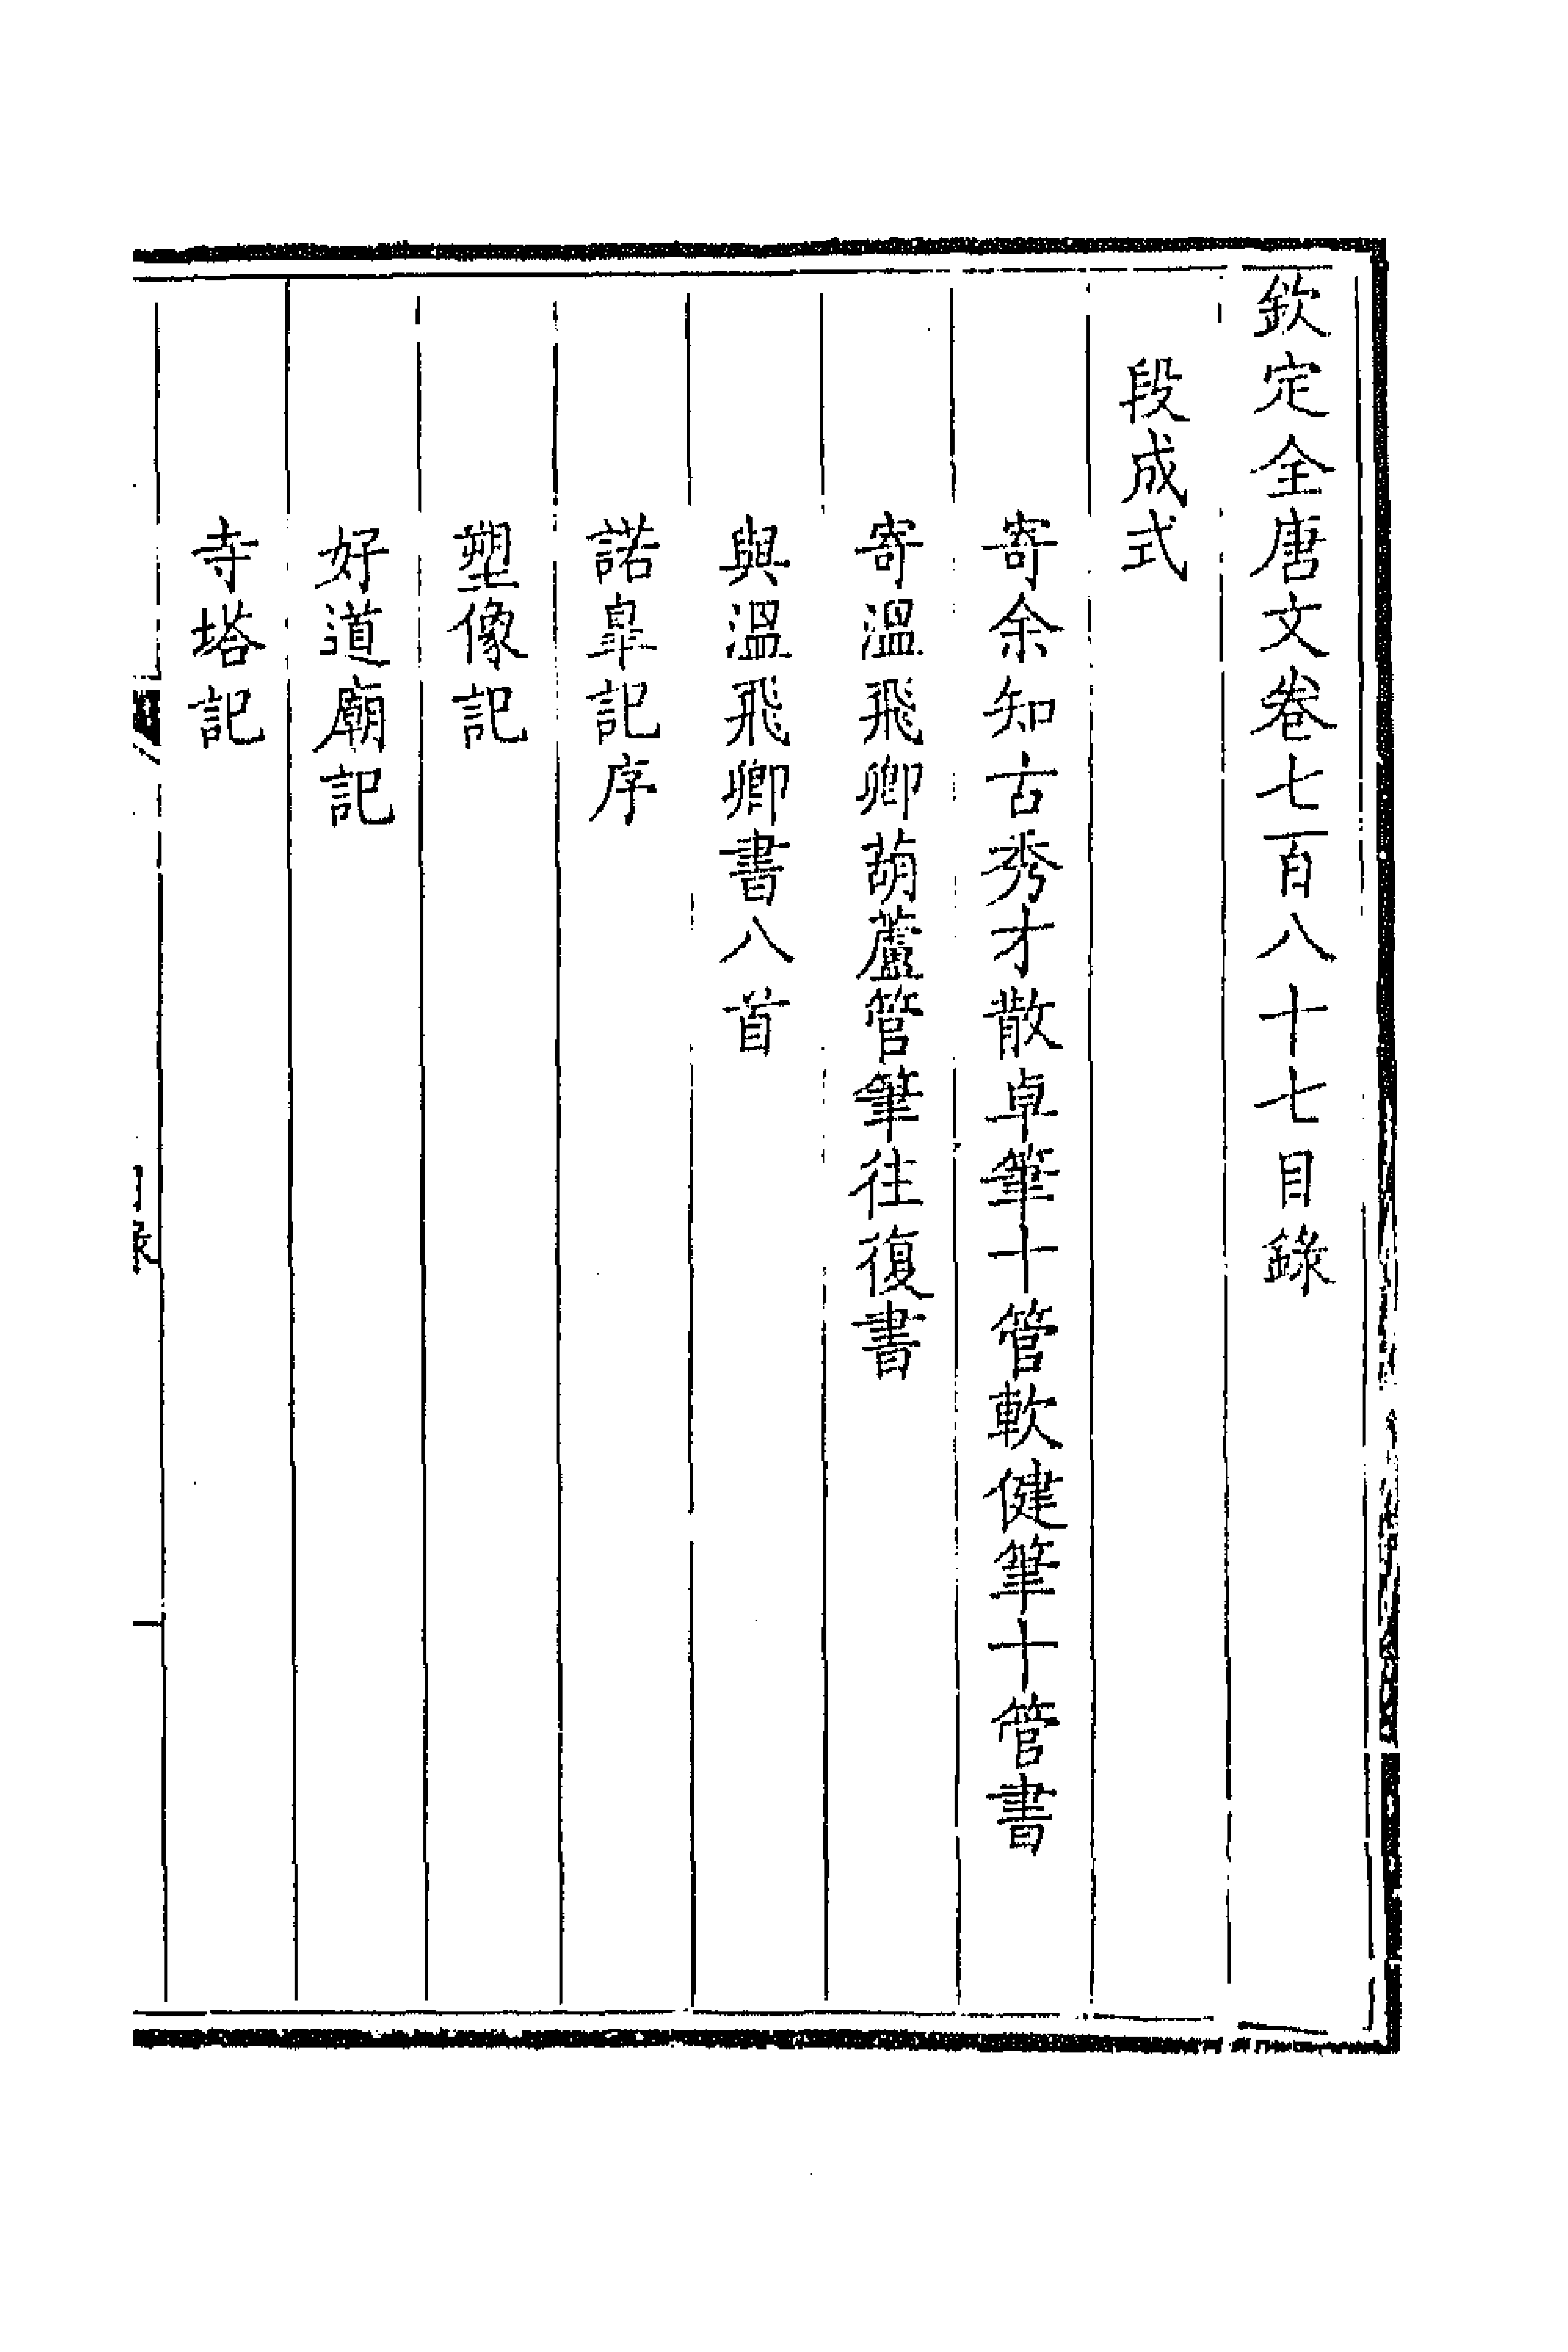 欽定全唐文卷七百八十七目錄
段成式
寄余知古秀才散卓筆十管軟健筆十管書
寄溫飛卿葫蘆管筆往復書
與溫飛卿書八首
諾皐記序
塑像記
好道廟記
寺塔記